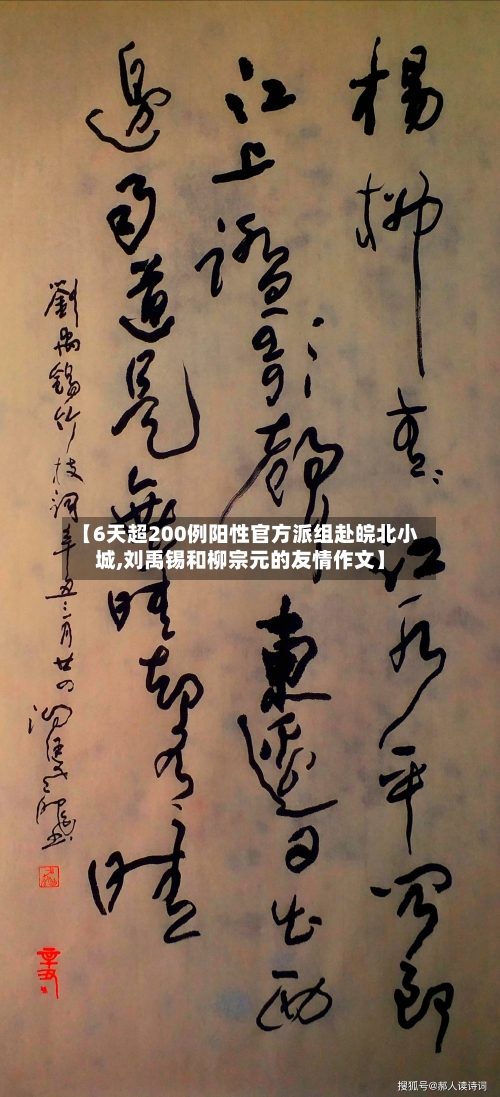 楊柳青〻江水平聞郎
江上踏歌聲東邊日出西
邊雨道是無晴却有晴
劉禹錫竹枝詞辛丑三月廿四
辛丑
【6天超200例阳性官方派组赴皖北小
城,刘禹锡和柳宗元的友情作文】
搜狐号@郝人读诗词